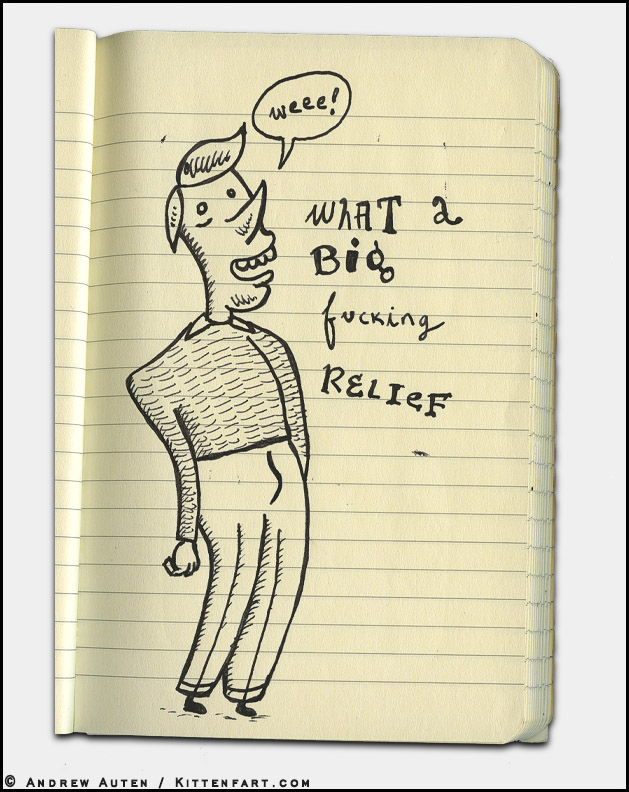 weee!
WhAT a
BiG
fucking
RELIEF
© ANDREW AUTEN / KITTENFART.COM